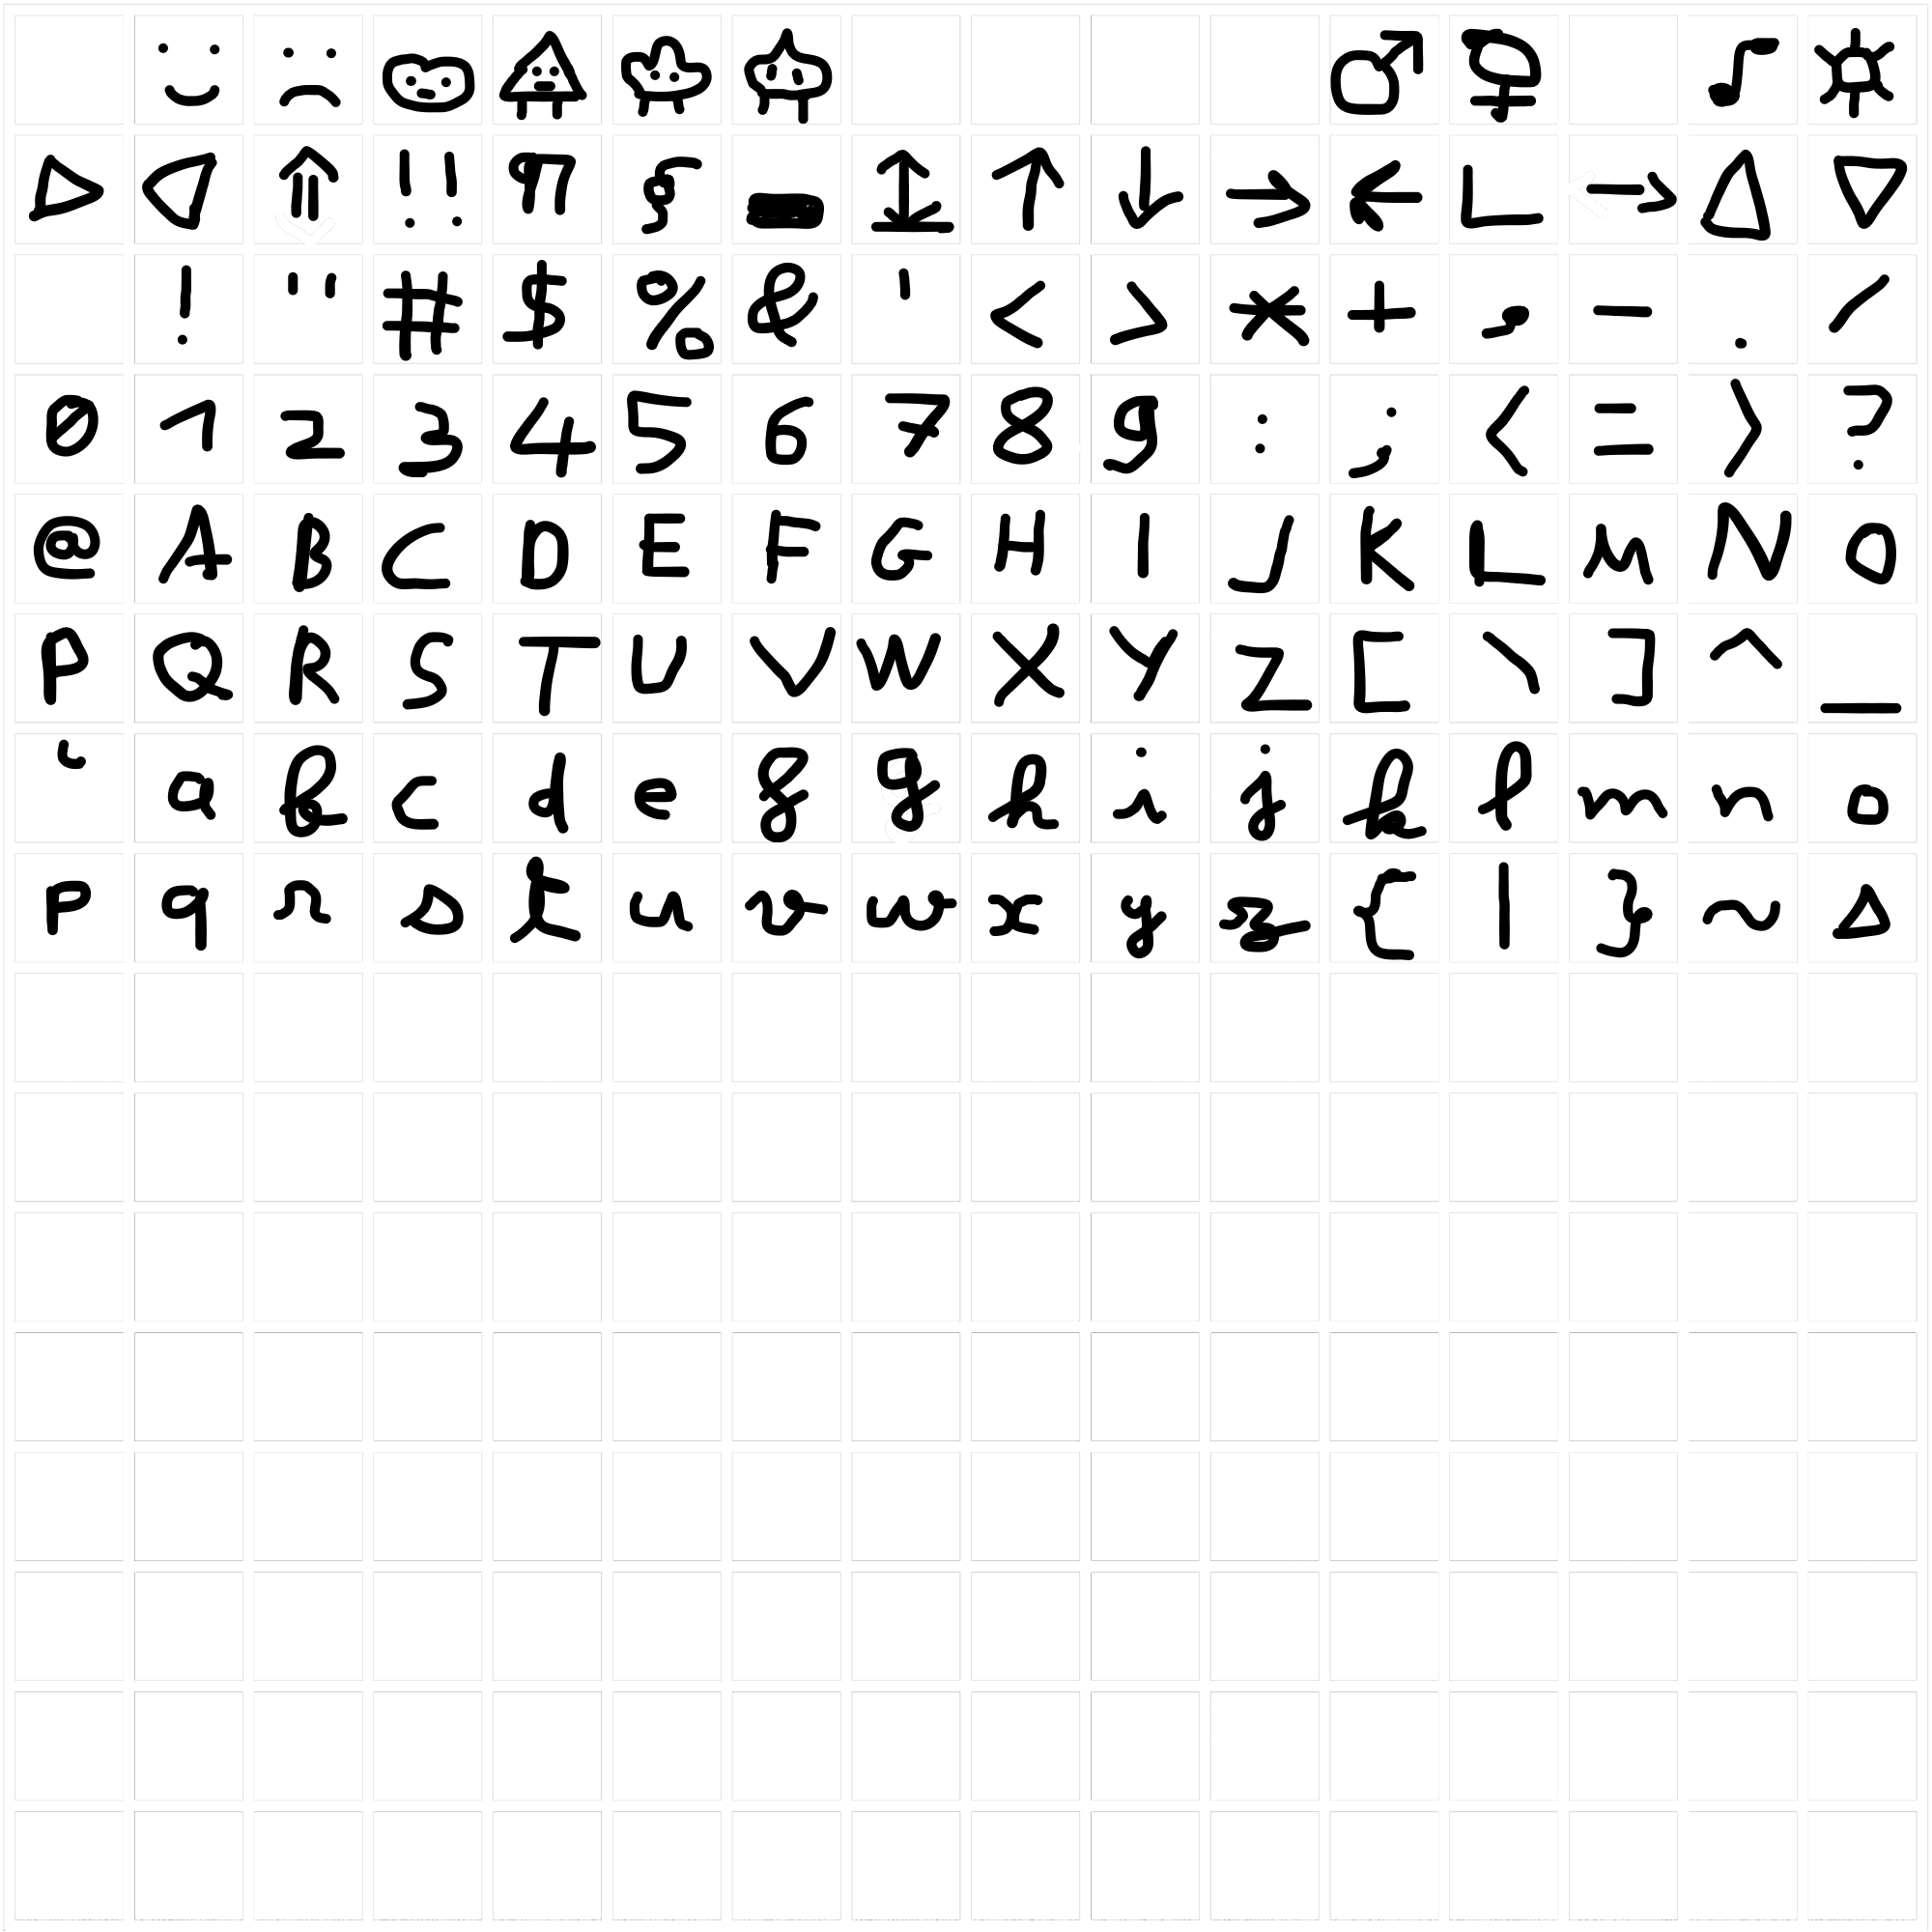 ♂ ♀ ♪ ☼
▷ ◁ ⇑ ‼ ¶ § ▬ ↨ ↑ ↓ → ← ∟ → △ ▽
! " # $ % & ' < > * + , - . /
0 1 2 3 4 5 6 7 8 9 : ; < = > ?
@ A B C D E F G H I J K L M N O
P Q R S T U V W X Y Z [ \ ] ^ _
` a b c d e f g h i j k l m n o
p q r s t u v w x y z { | } ~ △